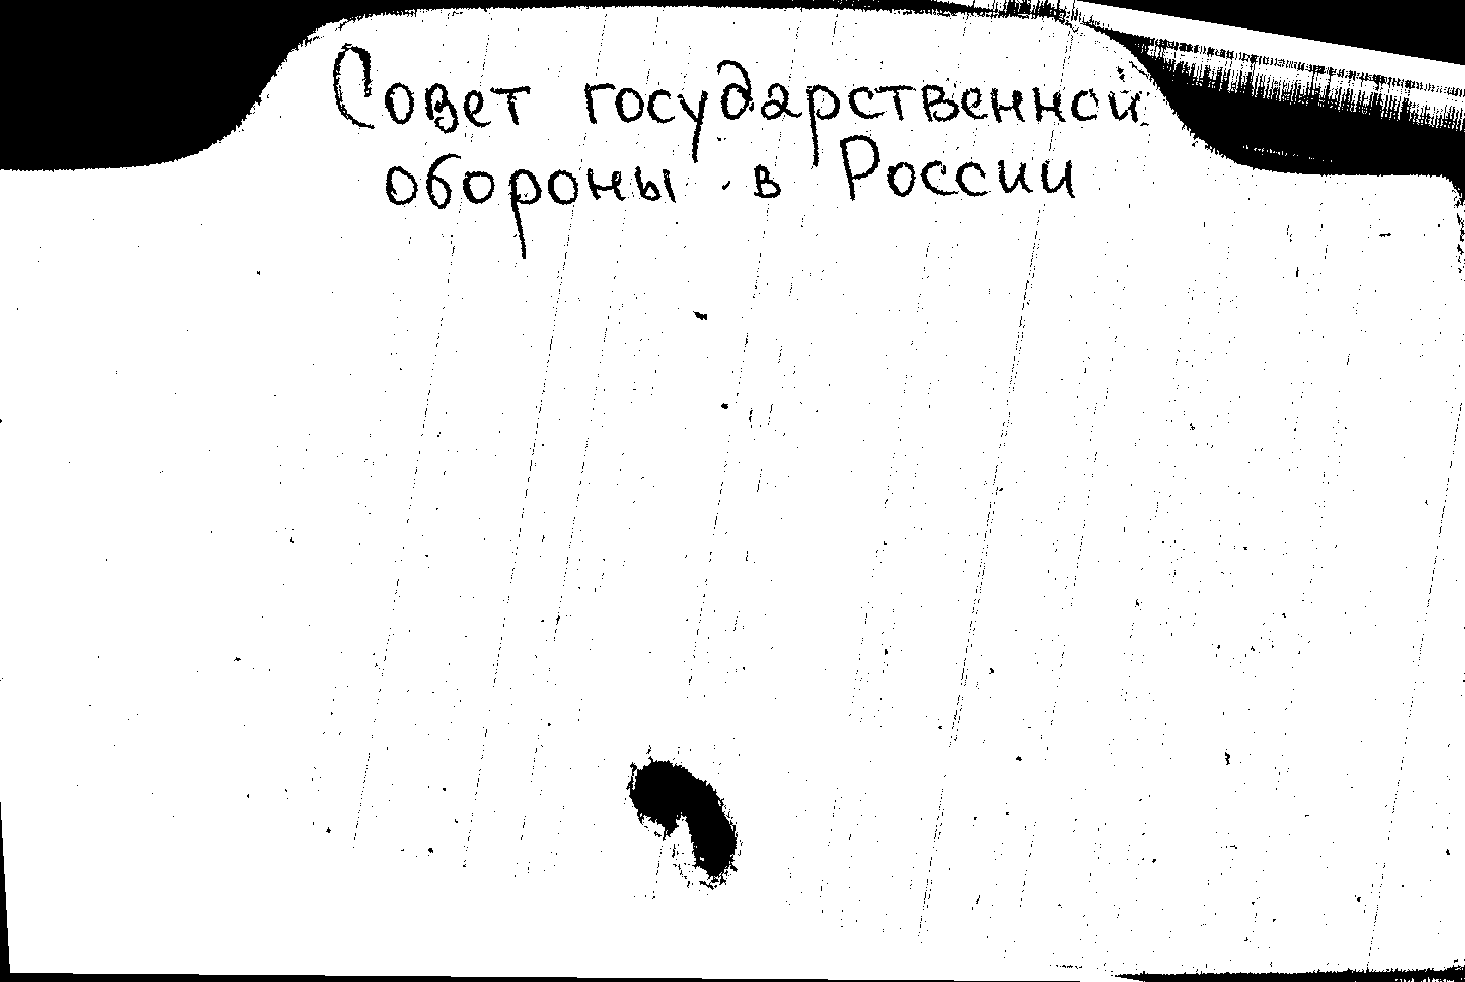 Совет государственной
обороны в России